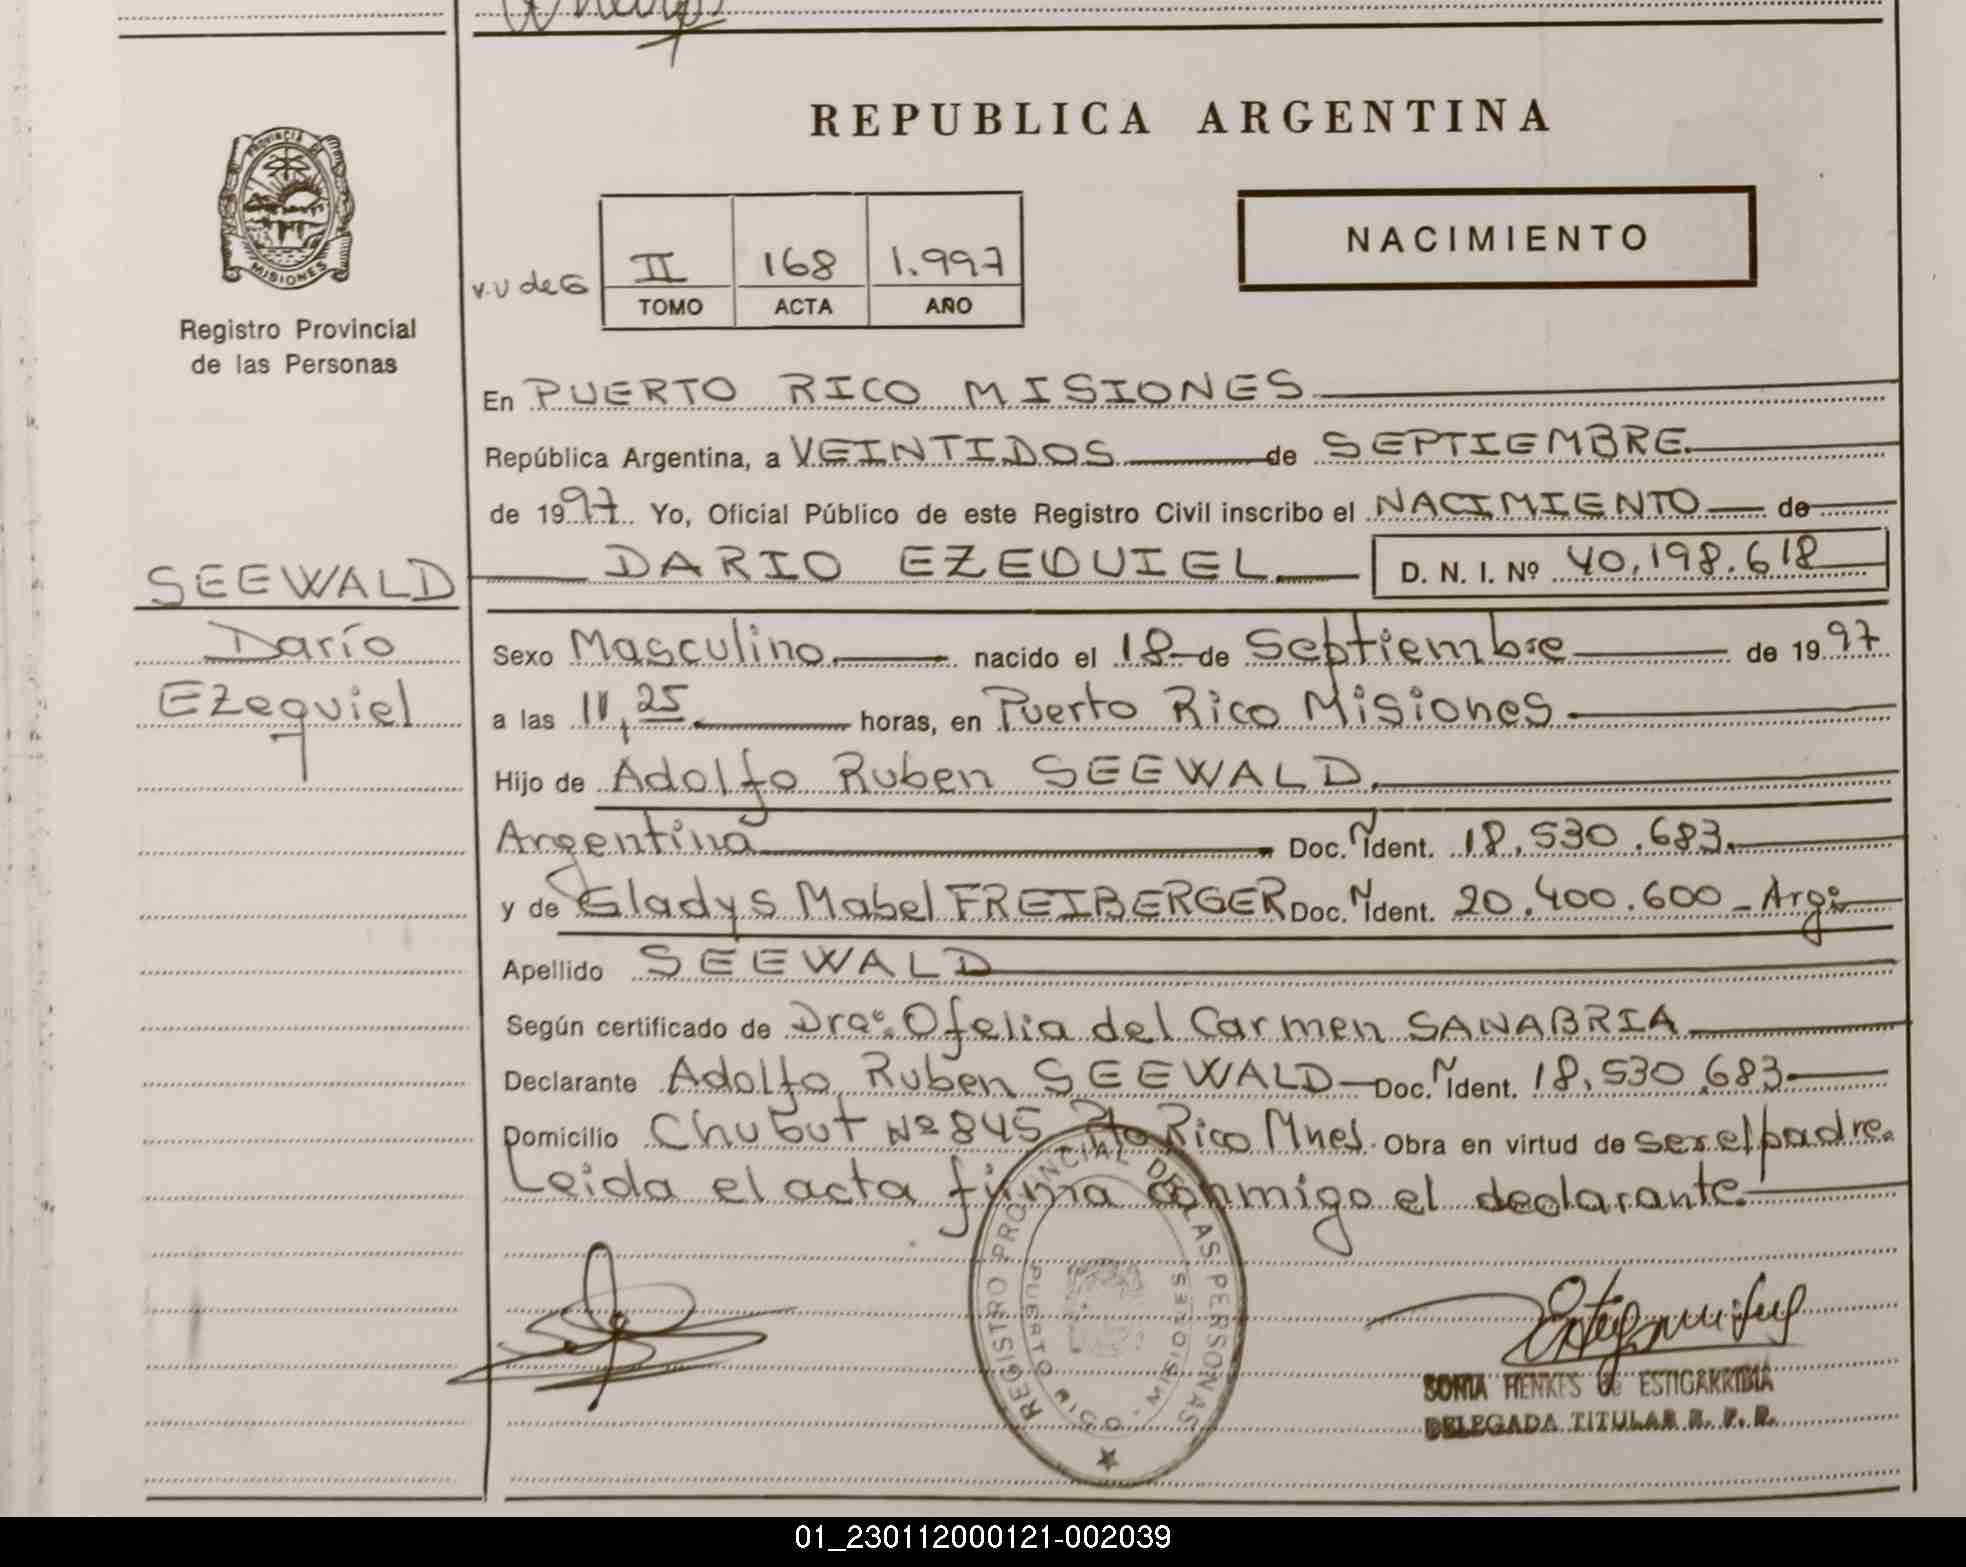 REPUBLICA ARGENTINA
PROVINCIA DE MISIONES
Registro Provincial
de las Personas
NACIMIENTO
v.u de G
II 168 1.997
TOMO ACTA AÑO
En PUERTO RICO MISIONES
República Argentina, a VEINTIDOS de SEPTIEMBRE
de 1997 Yo, Oficial Público de este Registro Civil inscribo el NACIMIENTO de
SEEWALD
Darío
Ezequiel
DARIO EZEQUIEL D. N. I. Nº 40.198.618
Sexo Masculino nacido el 18 de Septiembre de 1997
a las 11,25 horas, en Puerto Rico Misiones
Hijo de Adolfo Ruben SEEWALD
Argentina Doc. Ident. 18.530.683
y de Gladys Mabel FREIBERGER Doc. Ident. 20.400.600 - Arg:
Apellido SEEWALD
Según certificado de Dra: Ofelia del Carmen SANABRIA
Declarante Adolfo Ruben SEEWALD Doc. Ident. 18.530.683
Domicilio Chubut Nº 845 Pto Rico Mnes. Obra en virtud de ser el padre.
Leida el acta firma conmigo el declarante
REGISTRO PROVINCIAL DE LAS PERSONAS
PUERTO RICO - MISIONES
SONIA HENKES de ESTIGARRIBIA
DELEGADA TITULAR R. P. P.
01_230112000121-002039